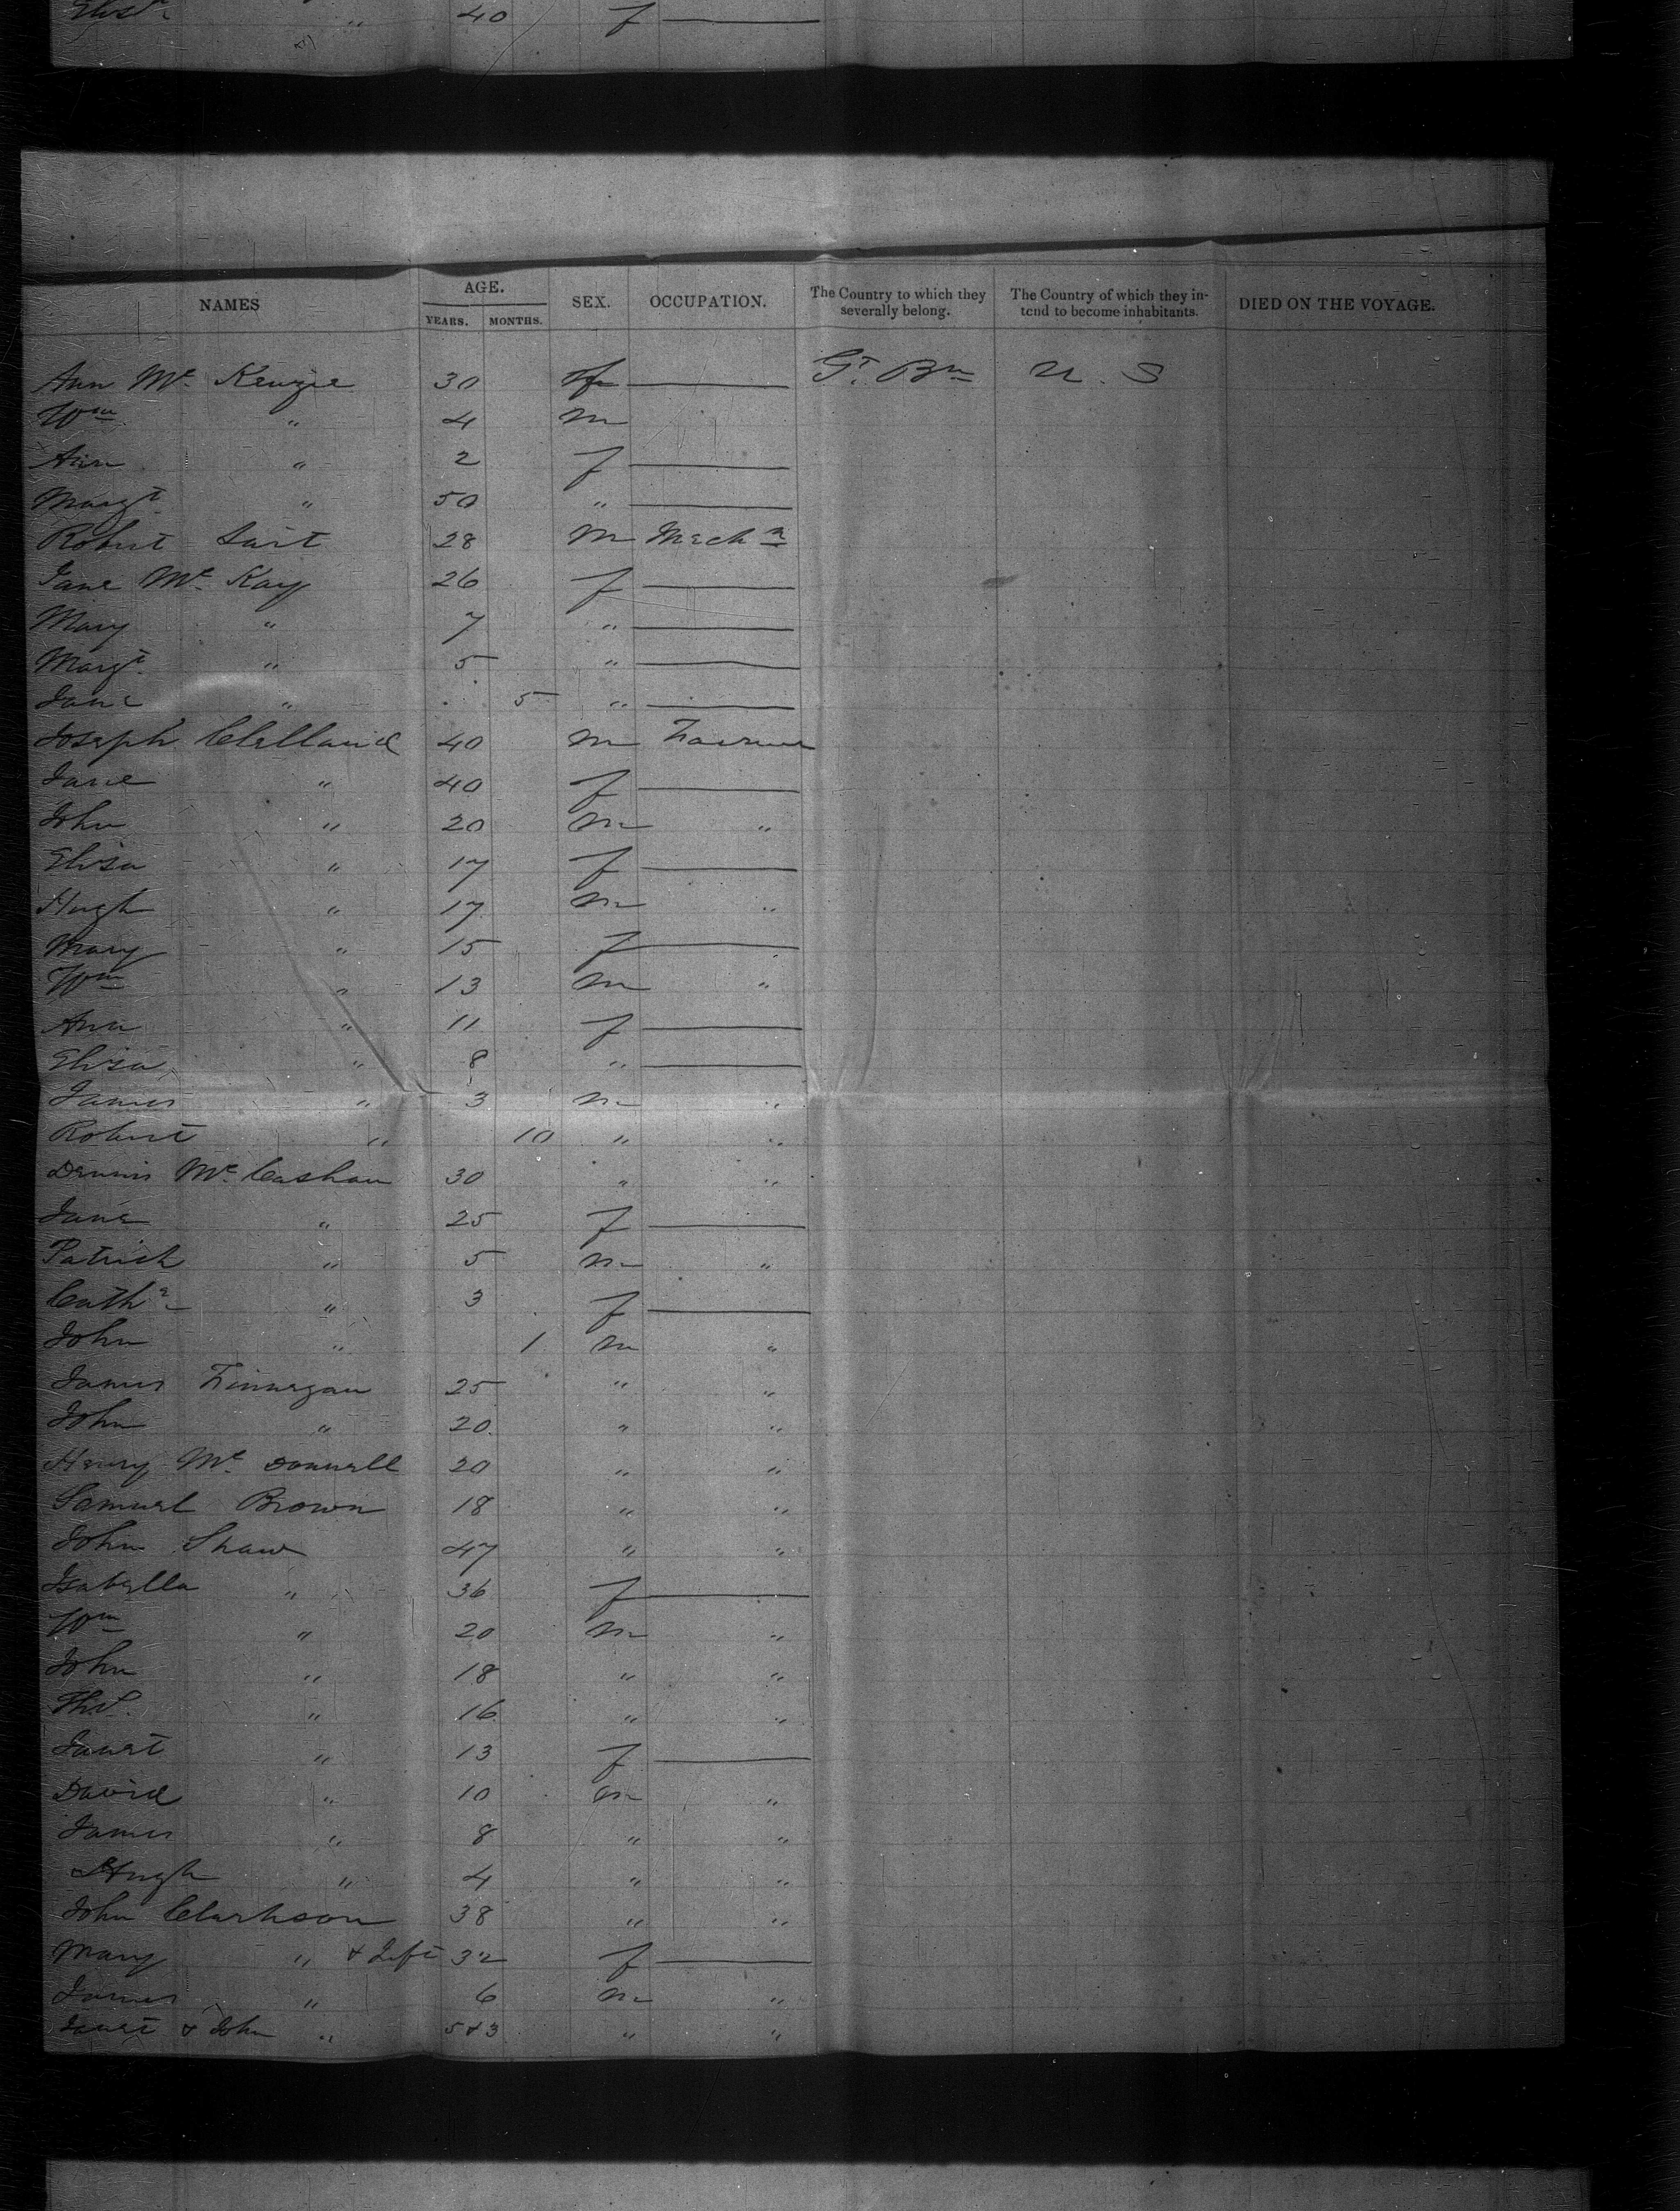 Elisth " 40 f —
NAMES AGE. YEARS. MONTHS. SEX. OCCUPATION. The Country to which they severally belong. The Country of which they intend to become inhabitants. DIED ON THE VOYAGE.
Ann Mc Kenzie 30 f — Gt. Bn U. S
Wm " 4 m
Ann " 2 f —
Margt " 50 " —
Robert 28 m Mechn
Jane Mc Kay 26 f —
Mary " 7 " —
Margt " 5 " —
Jane " 5 " —
Joseph Clelland 40 m Farmer
Jane " 40 f —
John " 20 m "
Eliza " 17 f —
Hugh " 17 m "
Mary " 15 f —
Wm " 13 m "
Ann " 11 f —
Eliza " 8 " —
James " 3 m "
Robert " 10 " "
Dennis Mc Cashan 30 " "
Jane " 25 f —
Patrick " 5 m "
Cathe " 3 f —
John " 1 m "
James Finnegan 25 " "
John " 20 " "
Henry Mc Donnell 20 " "
Samuel Brown 18 " "
John Shaw 47 " "
Isabella " 36 f —
Wm " 20 m "
John " 18 " "
Thos. " 16 " "
Janet " 13 f —
David " 10 m "
James " 8 " "
Hugh " 4 " "
John Clarkson 38 " "
Mary " & Inft 32 f —
James " 6 m "
Janet & John " 5 & 3 " "